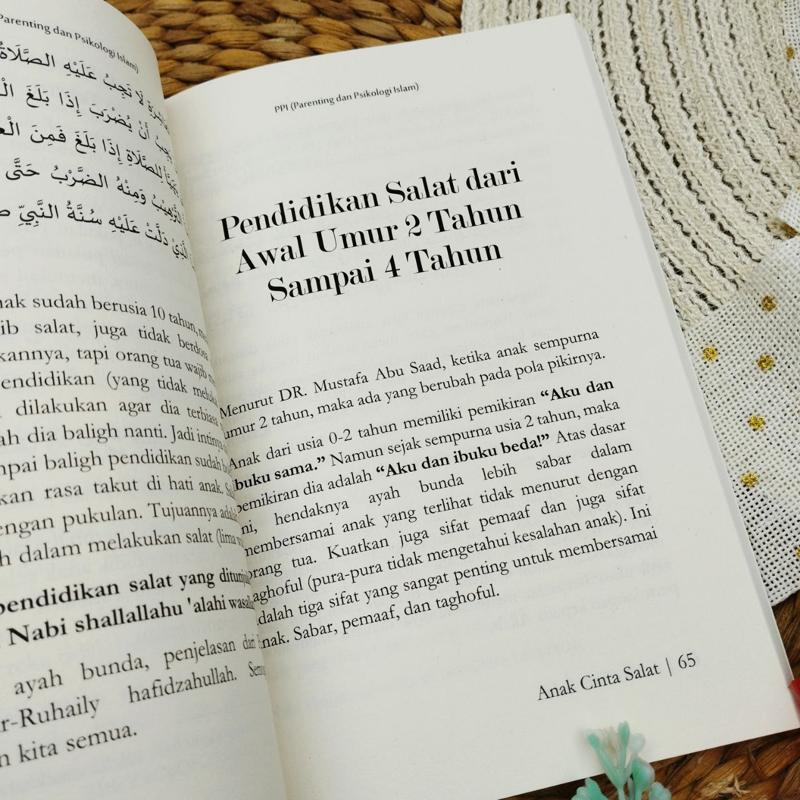 Parenting dan Psikologi Islam)
لَا تَجِبُ عَلَيْهِ الصَّلَاةُ
يَجِبُ أَنْ يُضْرَبَ إِذَا بَلَغَ
لِلصَّلَاةِ إِذَا بَلَغَ فَمِنَ
وَمِنْهُ الضَّرْبُ حَتَّى
دَلَّتْ عَلَيْهِ سُنَّةُ النَّبِيِّ
sudah berusia 10 tahun,
salat, juga tidak berdosa
tapi orang tua wajib
(yang tidak
dilakukan agar dia terbiasa
dia baligh nanti. Jadi intinya
baligh pendidikan sudah
rasa takut di hati anak.
dengan pukulan. Tujuannya
dalam melakukan salat (lima
pendidikan salat yang
Nabi shallallahu 'alahi
ayah bunda, penjelasan dari
hafidzahullah.
kita semua.
PPI (Parenting dan Psikologi Islam)
Pendidikan Salat dari
Awal Umur 2 Tahun
Sampai 4 Tahun
Menurut DR. Mustafa Abu Saad, ketika anak sempurna
umur 2 tahun, maka ada yang berubah pada pola pikirnya.
Anak dari usia 0-2 tahun memiliki pemikiran “Aku dan
ibuku sama.” Namun sejak sempurna usia 2 tahun, maka
pemikiran dia adalah “Aku dan ibuku beda!” Atas dasar
ini, hendaknya ayah bunda lebih sabar dalam
membersamai anak yang terlihat tidak menurut dengan
orang tua. Kuatkan juga sifat pemaaf dan juga sifat
taghoful (pura-pura tidak mengetahui kesalahan anak). Ini
adalah tiga sifat yang sangat penting untuk membersamai
anak. Sabar, pemaaf, dan taghoful.
Anak Cinta Salat | 65